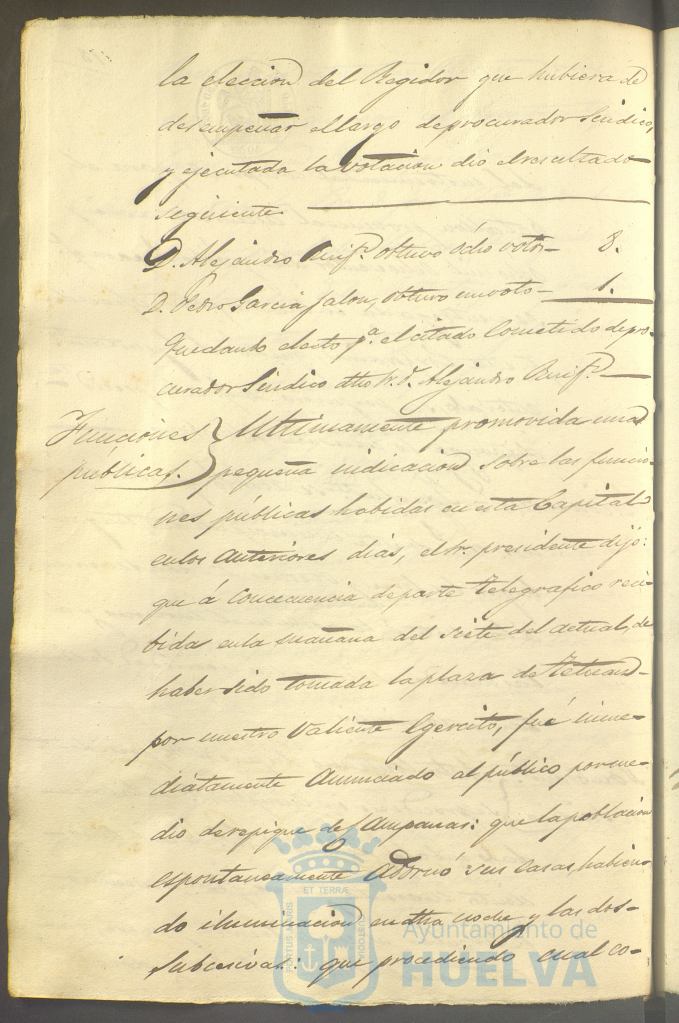 la eleccion del Regidor que hubiera de
desempeñar el cargo de procurador Sindico,
y ejecutada la votacion dio el resultado
siguiente
D. Alejandro obtuvo ocho votos— 8.
D. Pedro Garcia Jalon, obtuvo un voto— 1.
Quedando electo p.ª el citado Cometido de pro-
curador Sindico dho S.r D. Alejandro
Funciones } Ultimamente promovida una
públicas. } pequeña indicacion sobre las funcio-
nes públicas habidas en esta Capital
en los anteriores dias, el Sr. presidente dijo:
que á concecuencia de parte telegrafico reci-
bida en la mañana del siete del actual, de
haber sido tomada la plaza de Tetuan-
por nuestro valiente Egercito, fué inme-
diatamente anunciado al público por me-
dio de repique de Campanas: que la poblacion
espontaneamente adornó sus casas habien-
do iluminacion en dha noche y las dos-
subcesivas: que procediendo cual co-
ET TERRÆ
Ayuntamiento de
HUELVA